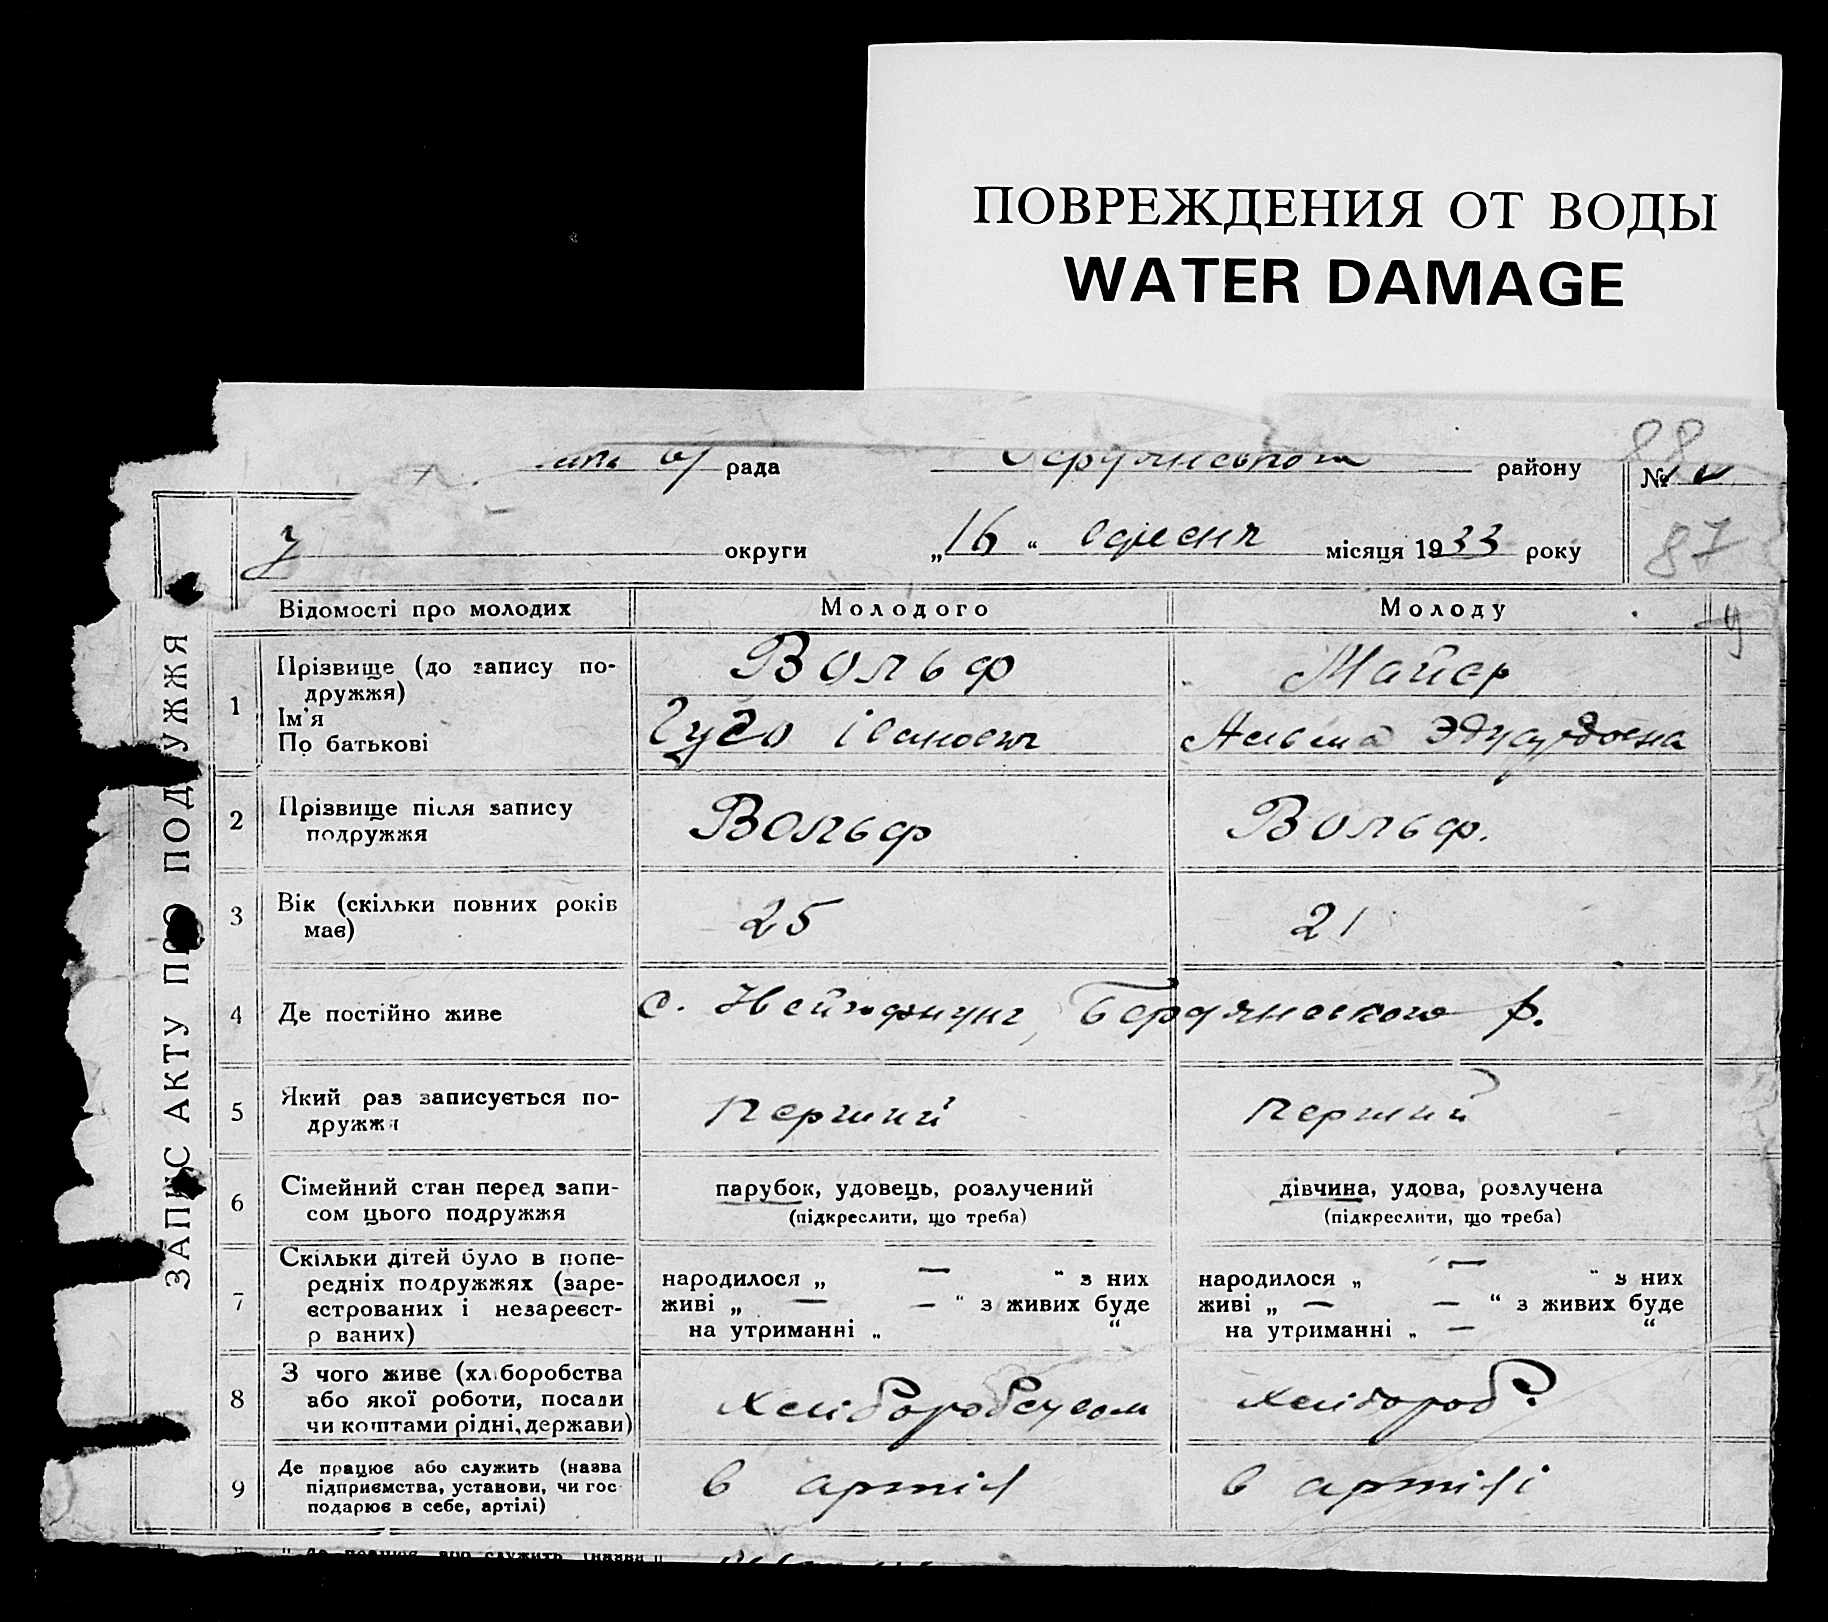 ПОВРЕЖДЕНИЯ ОТ ВОДЫ
WATER DAMAGE
88
рада Бердянського району №
округи „16“ вресня місяця 1933 року
87
ЗАПИС АКТУ ПРО ПОДРУЖЖЯ
Відомості про молодих Молодого Молоду
1 Прізвище (до запису по-
дружжя) Вольф Майєр
Ім'я
По батькові Гуго Іванович Альма Эдуардовна
2 Прізвище після запису
подружжя Вольф Вольф.
3 Вік (скільки повних років
має) 25 21
4 Де постійно живе с. Нейгофнунг, Бердянського р.
5 Який раз записується по-
дружжя перший перший
6 Сімейний стан перед запи-
сом цього подружжя
парубок, удовець, розлучений дівчина, удова, розлучена
(підкреслити, що треба) (підкреслити, що треба)
7 Скільки дітей було в попе-
редніх подружжях (заре-
єстрованих і незареєст-
р ваних)
народилося „ — “ з них народилося „ — “ з них
живі „ — — “ з живих буде живі „ — — “ з живих буде
на утриманні „ “ на утриманні „ — “
8 З чого живе (хліборобства
або якої роботи, посади
чи коштами рідні, держави) хліборобством хлібороб.
9 Де працює або служить (назва
підприємства, установи, чи гос
подарює в себе, артілі) в артілі в артілі